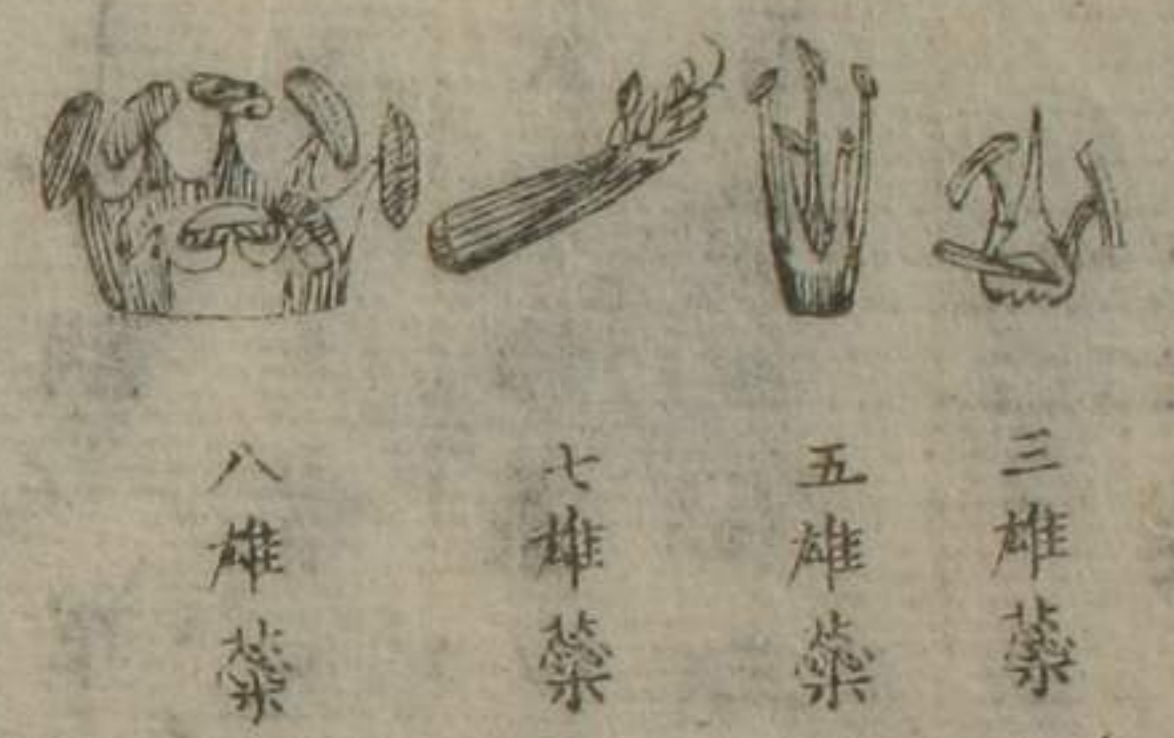 三雄蘂
五雄蘂
七雄蘂
八雄蘂